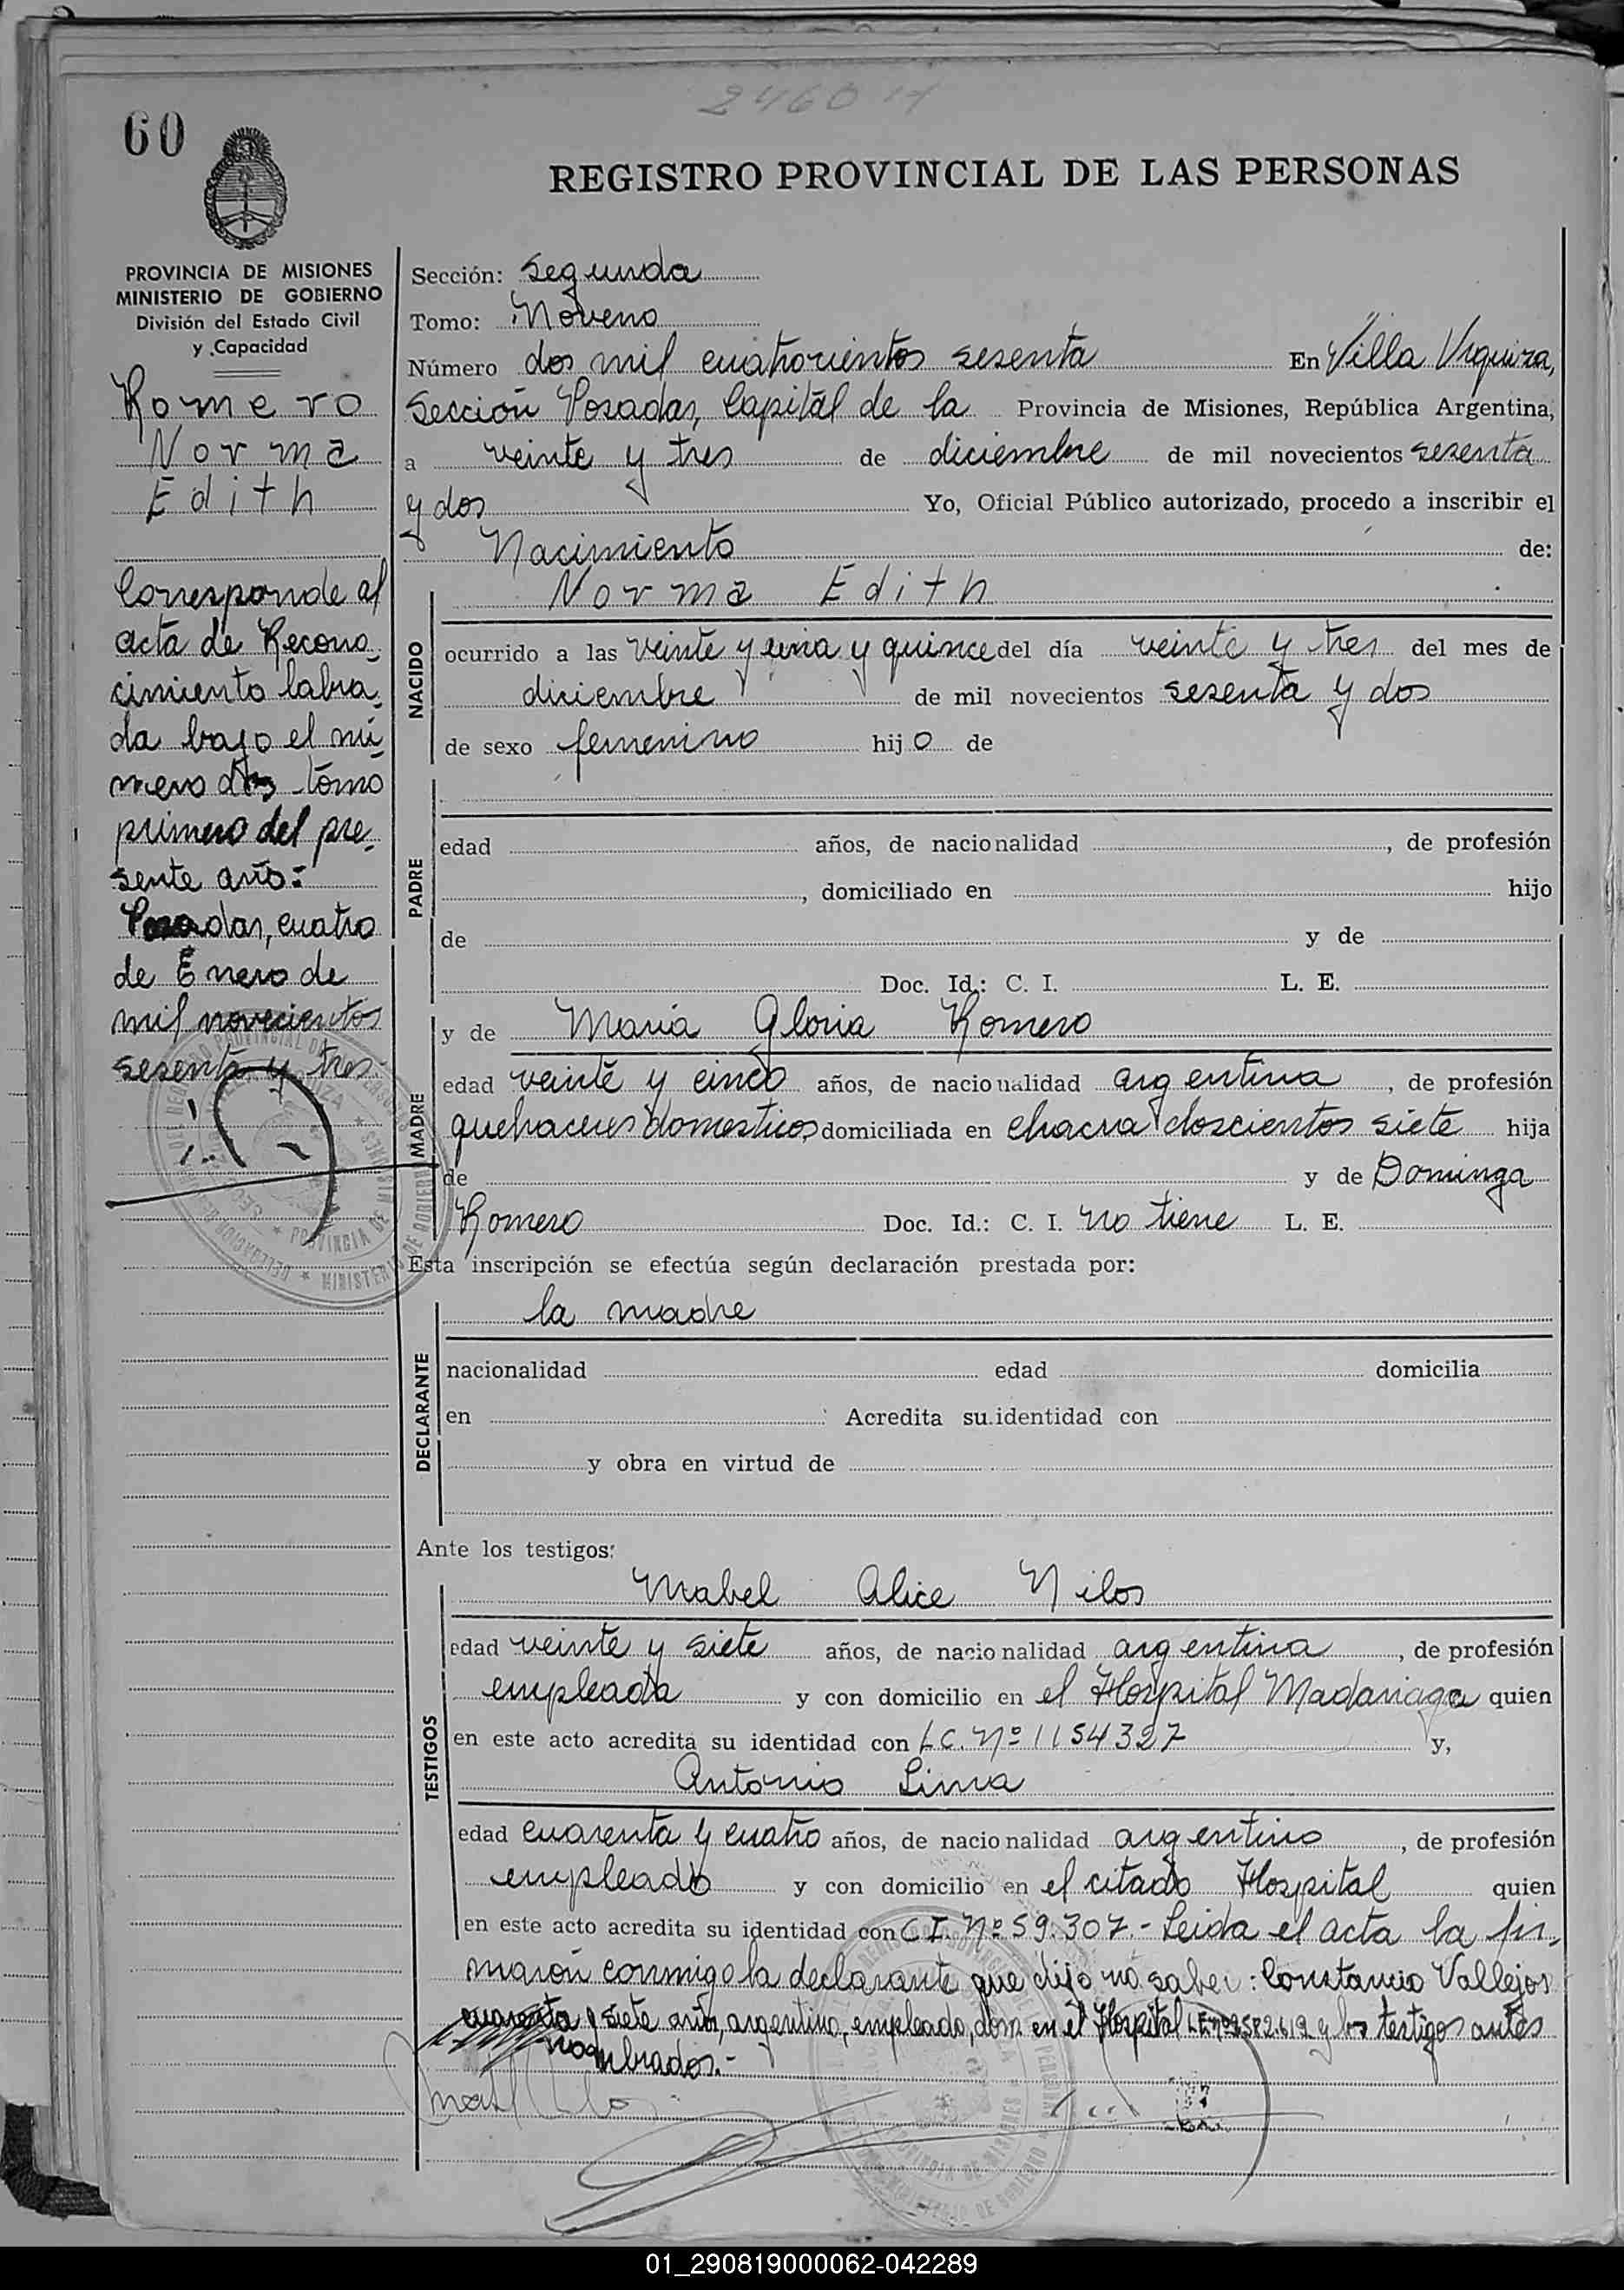 2460 H
60
REGISTRO PROVINCIAL DE LAS PERSONAS
PROVINCIA DE MISIONES
MINISTERIO DE GOBIERNO
División del Estado Civil
y Capacidad
Romero
Norma
Edith
Corresponde al
acta de Recono
cimiento labra
da bajo el nú
mero dos tomo
primero del pre
sente año:
Posadas, cuatro
de Enero de
mil novecientos
sesenta y tres
Sección: Segunda
Tomo: Noveno
Número dos mil cuatrocientos sesenta En Villa Urquiza,
Sección Posadas, Capital de la Provincia de Misiones, República Argentina,
a veinte y tres de diciembre de mil novecientos sesenta
y dos Yo, Oficial Público autorizado, procedo a inscribir el
Nacimiento de:
Norma Edith
NACIDO
ocurrido a las veinte y una y quince del día veinte y tres del mes de
diciembre de mil novecientos sesenta y dos
de sexo femenino hijo de
PADRE
edad años, de nacionalidad , de profesión
, domiciliado en hijo
de y de
Doc. Id.: C. I. L. E.
MADRE
y de María Gloria Romero
edad veinte y cinco años, de nacionalidad argentina , de profesión
quehaceres domesticos domiciliada en chacra doscientos siete hija
de y de Dominga
Romero Doc. Id.: C. I. no tiene L. E.
Esta inscripción se efectúa según declaración prestada por:
la madre
DECLARANTE
nacionalidad edad domicilia
en Acredita su identidad con
y obra en virtud de
Ante los testigos:
TESTIGOS
Mabel Alice Nilos
edad veinte y siete años, de nacionalidad argentina , de profesión
empleada y con domicilio en el Hospital Madariaga quien
en este acto acredita su identidad con L.C. Nº 1154327 y,
Antonio Lima
edad cuarenta y cuatro años, de nacionalidad argentino , de profesión
empleado y con domicilio en el citado Hospital quien
en este acto acredita su identidad con C.I. Nº 59.307.- Leida el acta la fir
maron conmigo la declarante que dijo no saber: Constancio Vallejos
cuarenta y siete años, argentino, empleado, dom. en el Hospital L.E. nº 2.582.619 y los testigos antes
nombrados.-
01_290819000062-042289